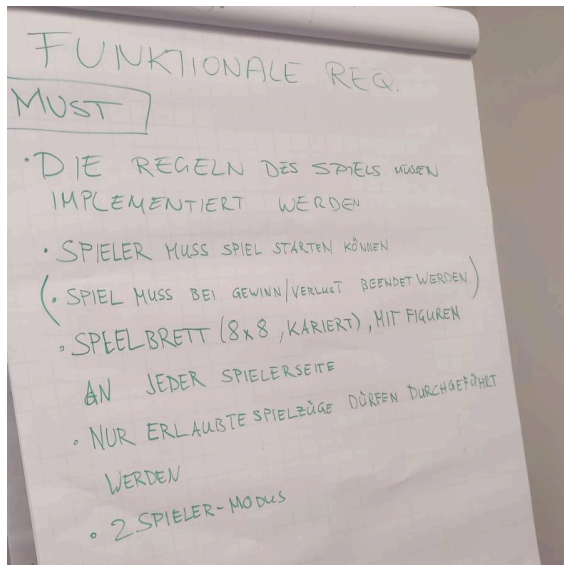 FUNKTIONALE REQ.
MUST
• DIE REGELN DES SPIELS MÜSEN
IMPLEMENTIERT WERDEN
• SPIELER MUSS SPIEL STARTEN KÖNNEN
(• SPIEL MUSS BEI GEWINN/VERLUST BEENDET WERDEN)
• SPEELBRETT (8x8, KARIERT), MIT FIGUREN
AN JEDER SPIELERSEITE
• NUR ERLAUBTE SPIELZÜGE DÜRFEN DURCHGEFÜHRT
WERDEN
• 2 SPIELER-MODUS